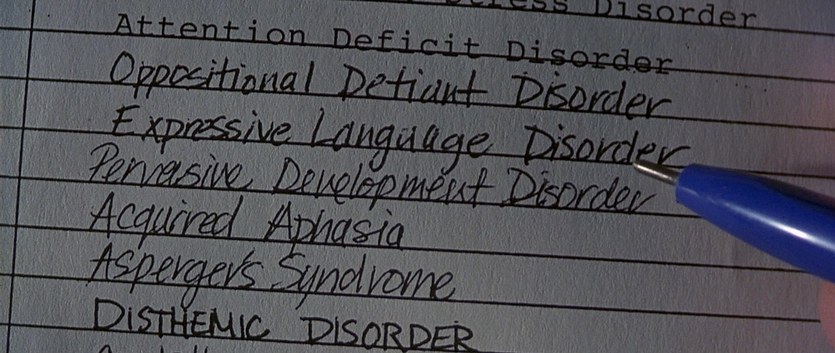 Disorder
Attention Deficit Disorder
Oppositional Defiant Disorder
Expressive Language Disorder
Pervasive Development Disorder
Acquired Aphasia
Asperger's Syndrome
DISTHEMIC DISORDER